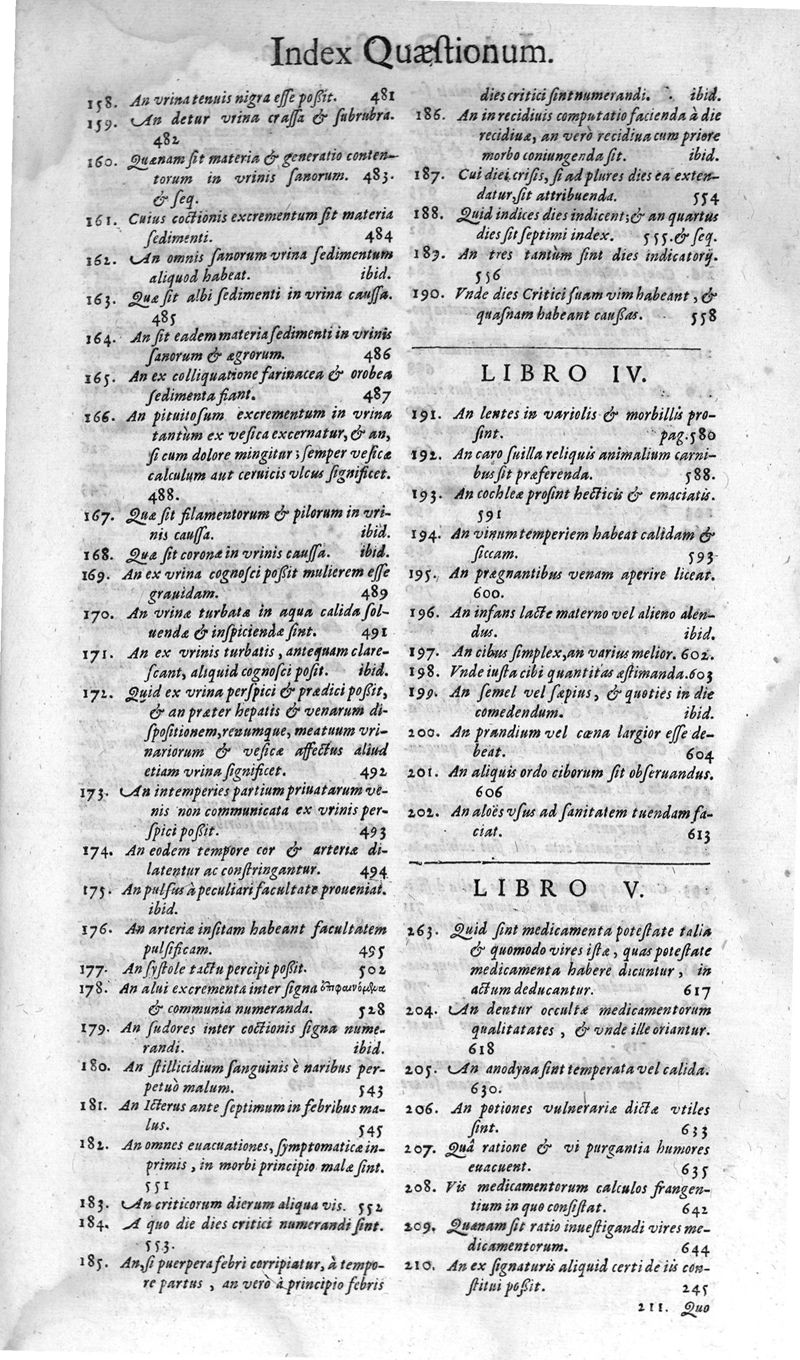 Index Quæstionum.
158. An vrina tenuis nigra esse poßit. 481
159. An detur vrina crassa & subrubra.
482
160. Quænam sit materia & generatio conten-
torum in vrinis sanorum. 483.
& seq.
161. Cuius coctionis excrementum sit materia
sedimenti. 484
162. An omnis sanorum vrina sedimentum
aliquod habeat. ibid.
163. Quæ sit albi sedimenti in vrina caussa.
485
164. An sit eadem materia sedimenti in vrinis
sanorum & ægrorum. 486
165. An ex colliquatione farinacea & orobea
sedimenta fiant. 487
166. An pituitosum excrementum in vrina
tantùm ex vesica excernatur, & an,
si cum dolore mingitur; semper vesicæ
calculum aut ceruicis vlcus significet.
488.
167. Quæ sit filamentorum & pilorum in vri-
nis caussa. ibid.
168. Quæ sit coronæ in vrinis caussa. ibid.
169. An ex vrina cognosci poßit mulierem esse
grauidam. 489
170. An vrinæ turbatæ in aqua calida sol-
uendæ & inspiciendæ sint. 491
171. An ex vrinis turbatis, antequam clare-
scant, aliquid cognosci posit. ibid.
172. Quid ex vrina perspici & prædici poßit,
& an præter hepatis & venarum di-
spositionem, renumque, meatuum vri-
nariorum & vesicæ affectus aliud
etiam vrina significet. 492
173. An intemperies partium priuatarum ve-
nis non communicata ex vrinis per-
spici poßit. 493
174. An eodem tempore cor & arteriæ di-
latentur ac constringantur. 494
175. An pulsus à peculiari facultate proueniat.
ibid.
176. An arteriæ insitam habeant facultatem
pulsificam. 495
177. An systole tactu percipi poßit. 502
178. An alui excrementa inter signa ἐπιφαινόμενα
& communia numeranda. 528
179. An sudores inter coctionis signa nume-
randi. ibid.
180. An stillicidium sanguinis è naribus per-
petuò malum. 543
181. An Icterus ante septimum in febribus ma-
lus. 545
182. An omnes euacuationes, symptomaticæ in-
primis, in morbi principio malæ sint.
551
183. An criticorum dierum aliqua vis. 552
184. A quo die dies critici numerandi sint.
553.
185. An, si puerpera febri corripiatur, à tempo-
re partus, an verò à principio febris
dies critici sint numerandi. ibid.
186. An in recidiuis computatio facienda à die
recidiuæ, an verò recidiua cum priore
morbo coniungenda sit. ibid.
187. Cui diei crisis, si ad plures dies ea exten-
datur, sit attribuenda. 554
188. Quid indices dies indicent; & an quartus
dies sit septimi index. 555. & seq.
189. An tres tantùm sint dies indicatorij.
556
190. Vnde dies Critici suam vim habeant, &
quasnam habeant caußas. 558
LIBRO IV.
191. An lentes in variolis & morbillis pro-
sint. pag. 580
192. An caro suilla reliquis animalium carni-
bus sit præferenda. 588.
193. An cochleæ prosint hecticis & emaciatis.
591
194. An vinum temperiem habeat calidam &
siccam. 593
195. An prægnantibus venam aperire liceat.
600.
196. An infans lacte materno vel alieno alen-
dus. ibid.
197. An cibus simplex, an varius melior. 602.
198. Vnde iusta cibi quantitas æstimanda. 603
199. An semel vel sæpius, & quoties in die
comedendum. ibid.
200. An prandium vel cœna largior esse de-
beat. 604
201. An aliquis ordo ciborum sit obseruandus.
606
202. An aloës vsus ad sanitatem tuendam fa-
ciat. 613
LIBRO V.
263. Quid sint medicamenta potestate talia
& quomodo vires istæ, quas potestate
medicamenta habere dicuntur, in
actum deducantur. 617
204. An dentur occultæ medicamentorum
qualitatates, & vnde illæ oriantur.
618
205. An anodyna sint temperata vel calida.
630.
206. An potiones vulnerariæ dictæ vtiles
sint. 633
207. Quâ ratione & vi purgantia humores
euacuent. 635
208. Vis medicamentorum calculos frangen-
tium in quo consistat. 642
209. Quænam sit ratio inuestigandi vires me-
dicamentorum. 644
210. An ex signaturis aliquid certi de iis con-
stitui poßit. 245
211. Quo